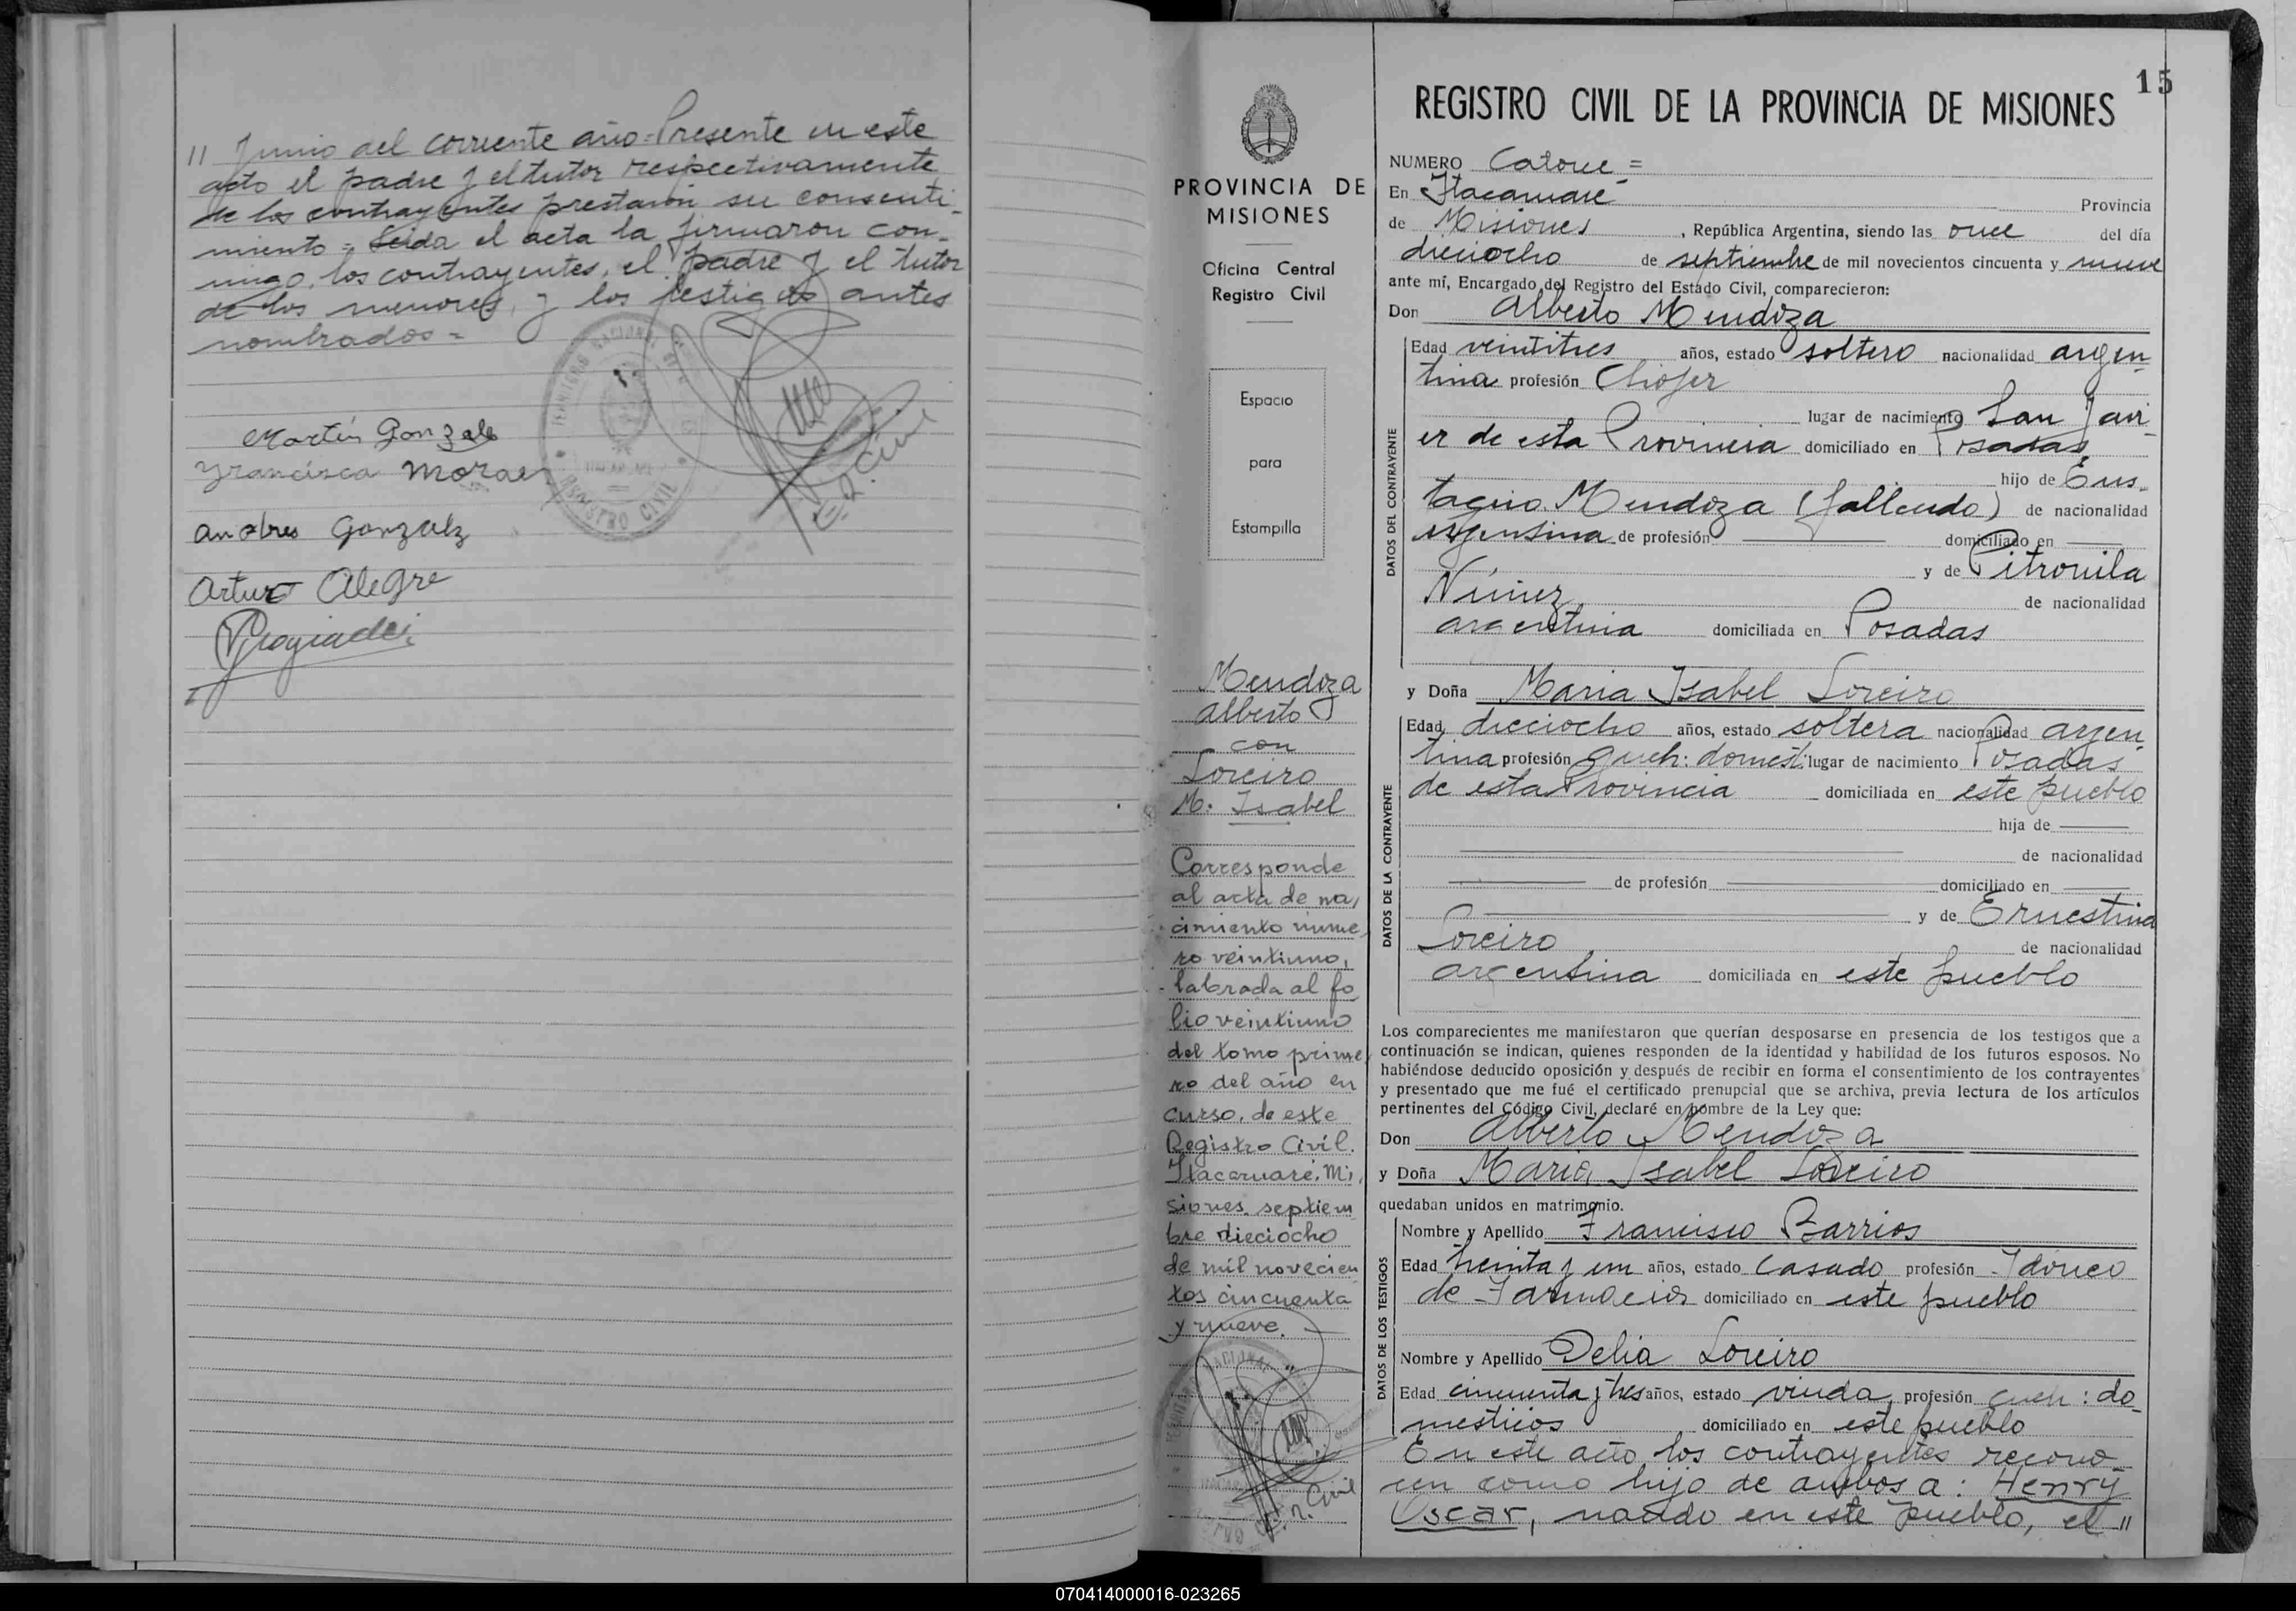 " Junio del corriente año = Presente en este
acto el padre y el tutor respectivamente
de los contrayentes prestaron su consenti-
miento = Leida el acta la firmaron con-
migo, los contrayentes, el padre y el tutor
de los menores, y los testigos antes
nombrados =
REGISTRO CIVIL
E. R. Civil
Martín Gonzale
Francisca Morae
Andres Gonzalez
Arturo Alegre
15
PROVINCIA DE
MISIONES
Oficina Central
Registro Civil
Espacio
para
Estampilla
Mendoza
Alberto
con
Loreiro
M. Isabel
Corresponde
al acta de na,
cimiento núme,
ro veintiuno,
labrada al fo,
lio veintiuno
del tomo prime,
ro del año en
curso, de este
Registro Civil.
Itacaruaré, Mi,
siones, septiem
bre dieciocho
de mil novecien
tos cincuenta
y nueve.
E. R. Civil
REGISTRO CIVIL DE LA PROVINCIA DE MISIONES
NUMERO Catorce =
En Itacaruaré Provincia
de Misiones, República Argentina, siendo las once del día
dieciocho de septiembre de mil novecientos cincuenta y nueve
ante mí, Encargado del Registro del Estado Civil, comparecieron:
Don Alberto Mendoza
DATOS DEL CONTRAYENTE
Edad veintitres años, estado soltero nacionalidad argen-
tina profesión Chofer
lugar de nacimiento San Javi-
er de esta Provincia domiciliado en Posadas
hijo de Eus-
taquio Mendoza (fallecido) de nacionalidad
argentina de profesión domiciliado en
y de Petronila
Núñez de nacionalidad
argentina domiciliada en Posadas
y Doña Maria Isabel Loreiro
DATOS DE LA CONTRAYENTE
Edad dieciocho años, estado soltera nacionalidad argen-
tina profesión queh: domést: lugar de nacimiento Posadas
de esta Provincia domiciliada en este pueblo
hija de
de nacionalidad
de profesión domiciliado en
y de Ernestina
Loreiro de nacionalidad
argentina domiciliada en este pueblo
Los comparecientes me manifestaron que querían desposarse en presencia de los testigos que a
continuación se indican, quienes responden de la identidad y habilidad de los futuros esposos. No
habiéndose deducido oposición y después de recibir en forma el consentimiento de los contrayentes
y presentado que me fué el certificado prenupcial que se archiva, previa lectura de los artículos
pertinentes del Código Civil, declaré en nombre de la Ley que:
Don Alberto Mendoza
y Doña Maria Isabel Loreiro
quedaban unidos en matrimonio.
DATOS DE LOS TESTIGOS
Nombre y Apellido Francisco Barrios
Edad treinta y un años, estado Casado profesión Idoneo
de Farmacia domiciliado en este pueblo
Nombre y Apellido Delia Loreiro
Edad cincuenta y tres años, estado viuda profesión queh: do-
mesticos domiciliado en este pueblo
En este acto los contrayentes recono-
cen como hijo de ambos a: Henry
Oscar, nacido en este pueblo, el "
070414000016-023265